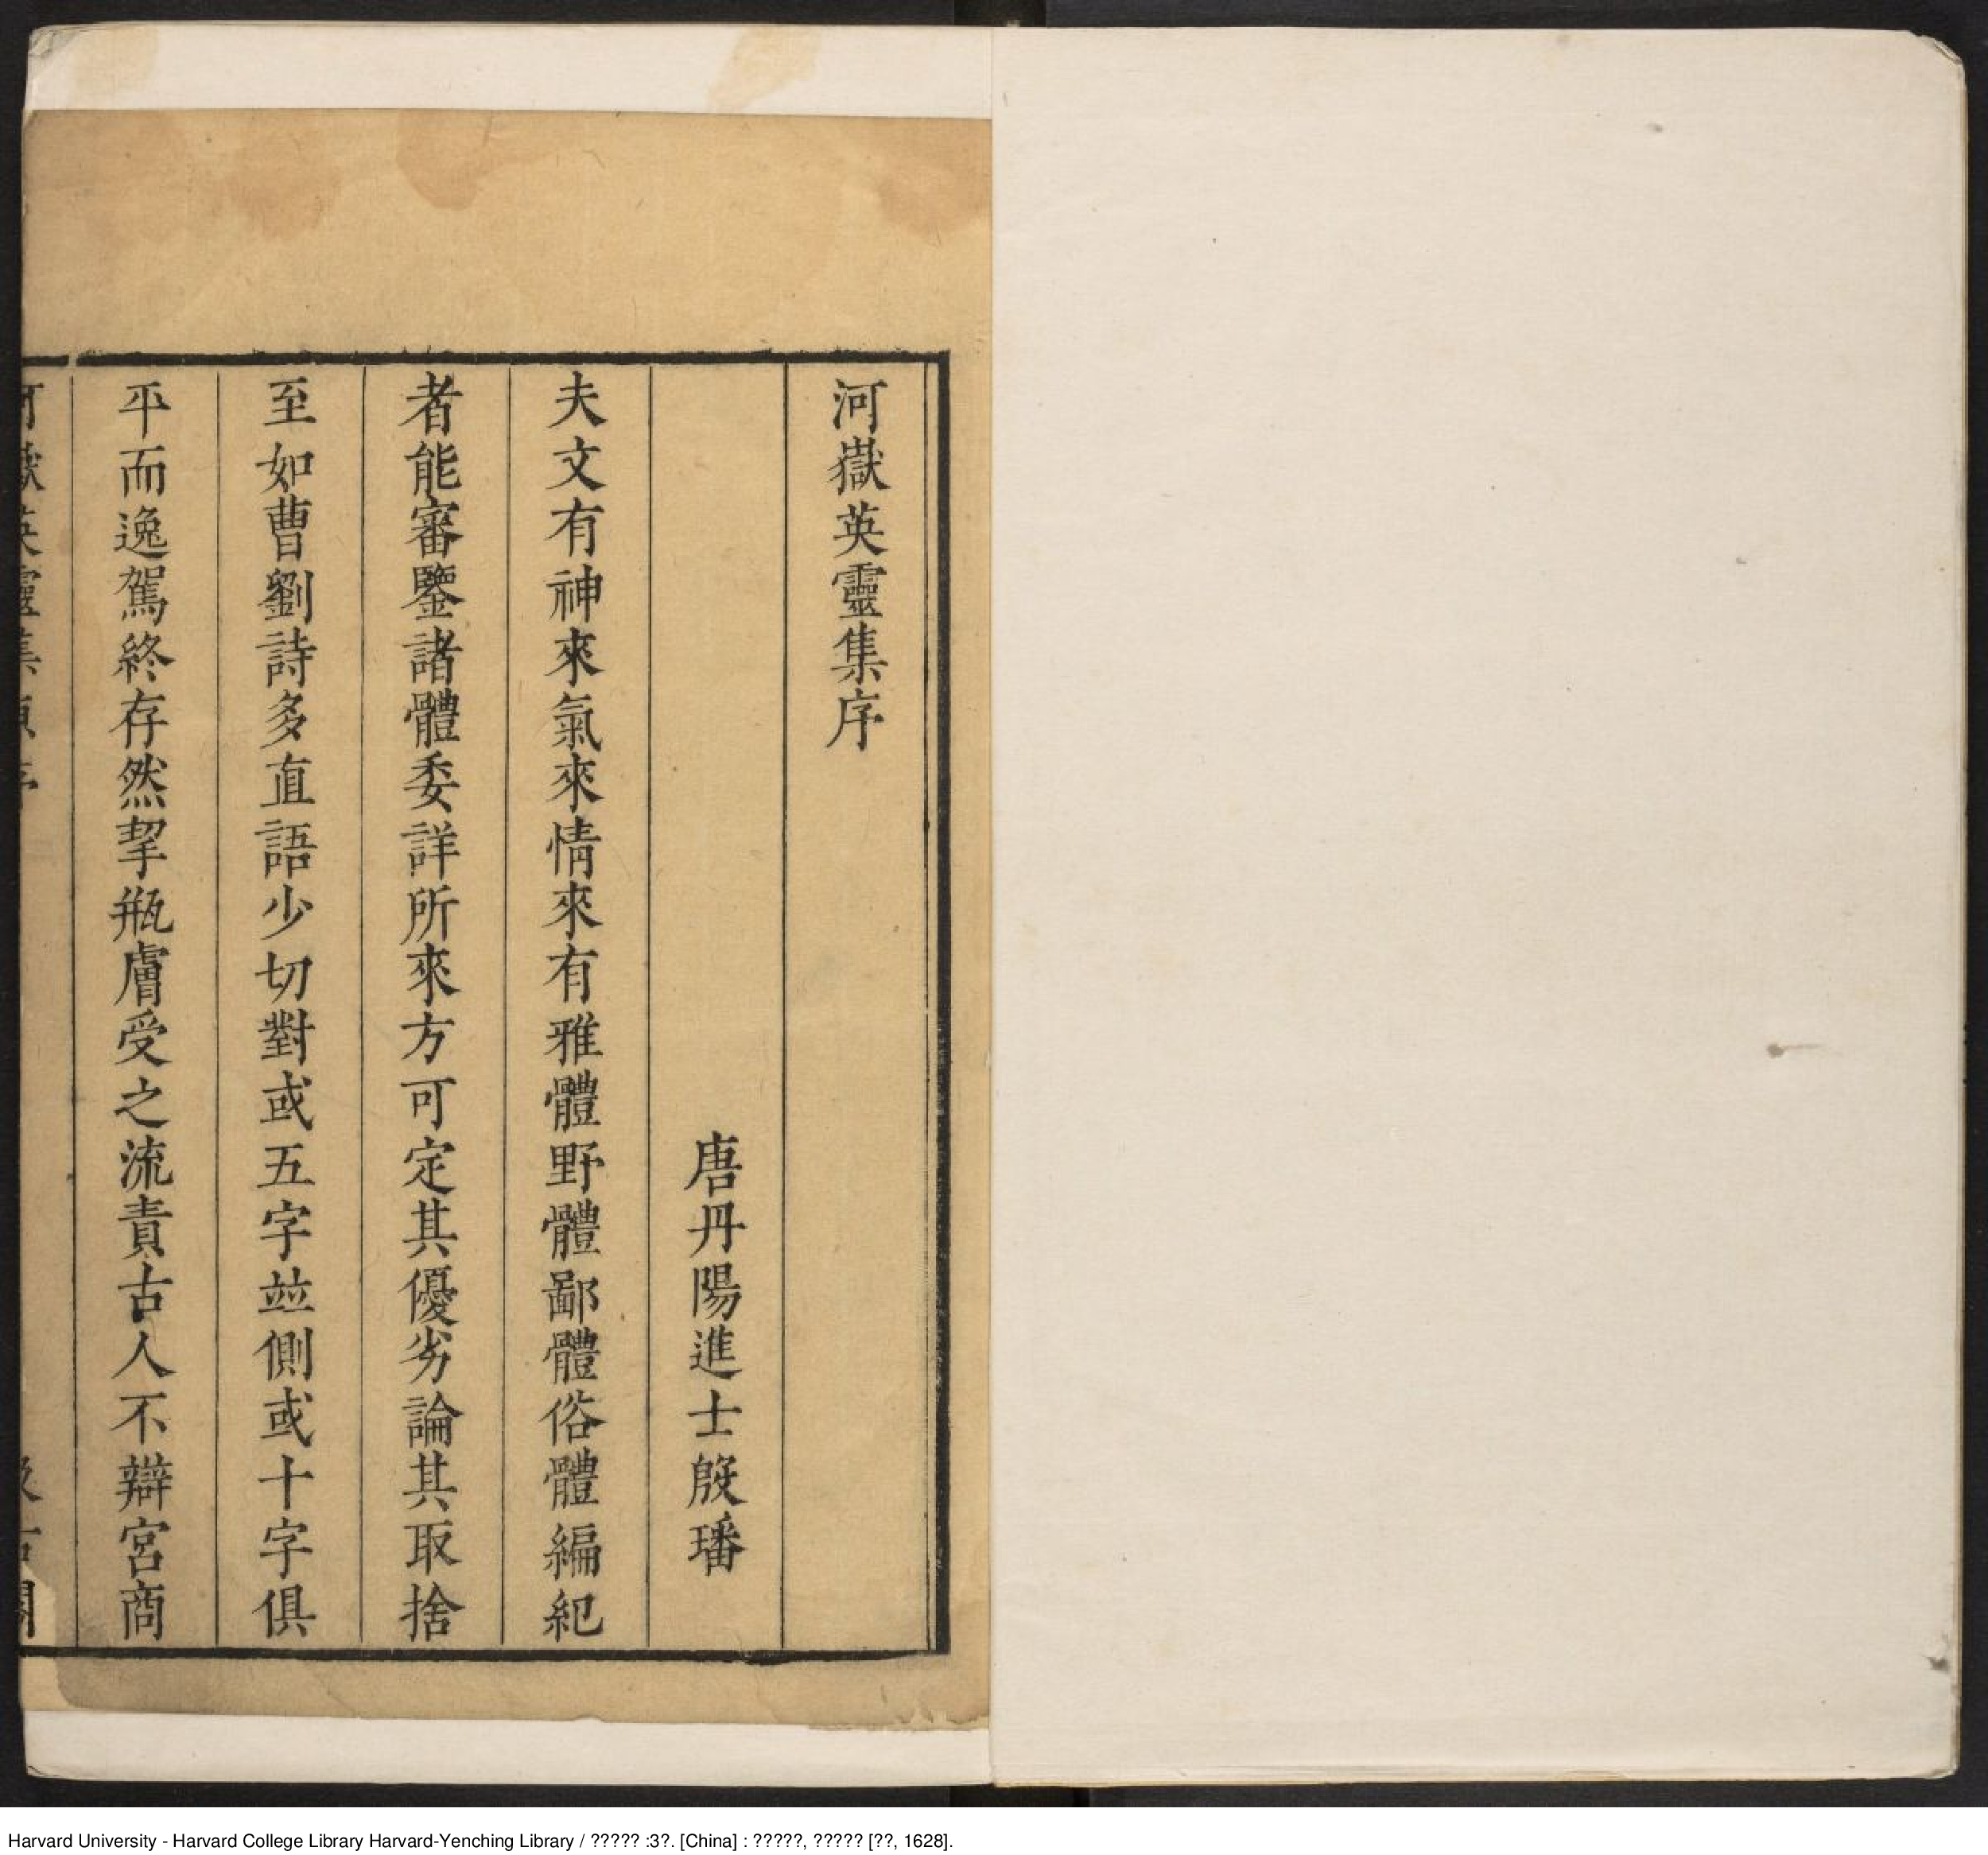 河嶽英靈集序
唐丹陽進士殷璠
夫文有神來氣來情來有雅體野體鄙體俗體編紀
者能審鑒諸體委詳所來方可定其優劣論其取捨
至如曹劉詩多直語少切對或五字並側或十字俱
平而逸駕終存然挈瓶膚受之流責古人不辯宮商
Harvard University - Harvard College Library Harvard-Yenching Library / ????? :3?. [China] : ?????, ????? [??, 1628].